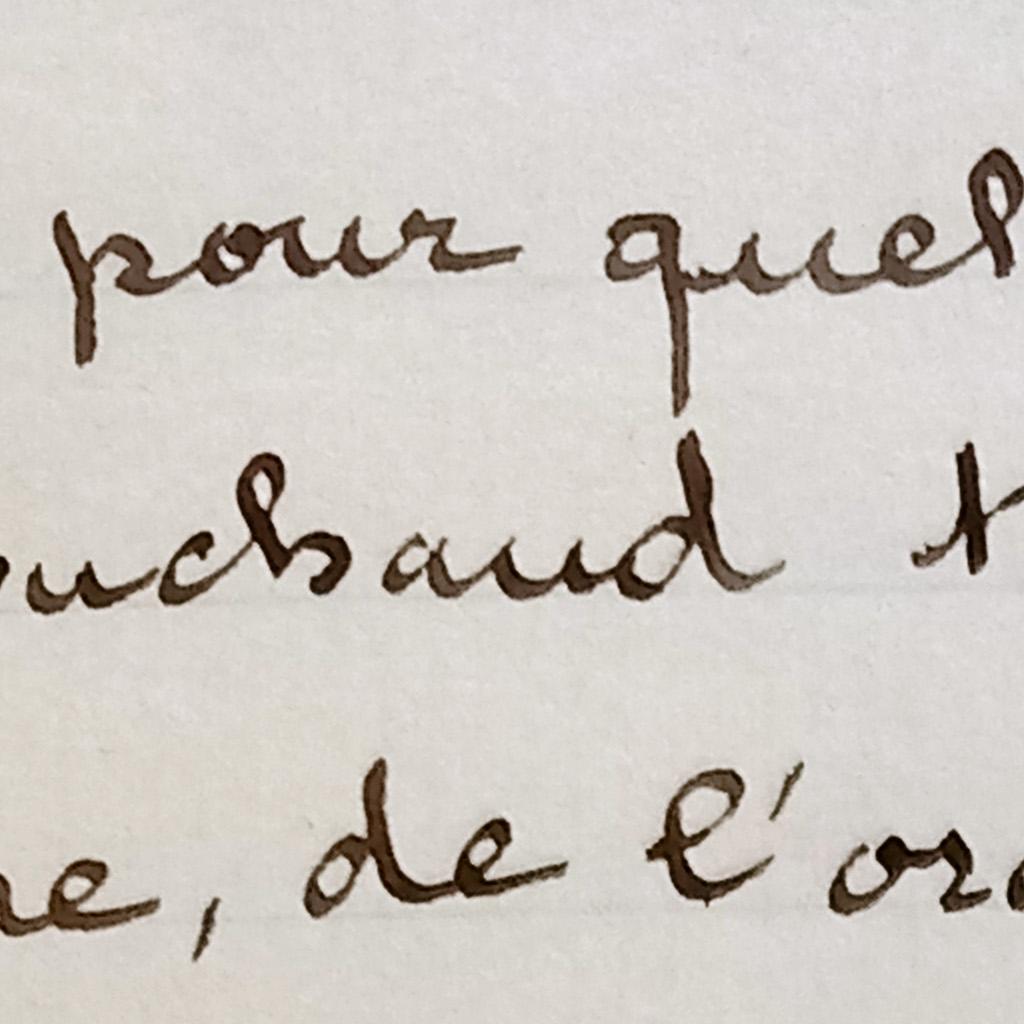 pour quel
ouchaud t
ne, de l'or